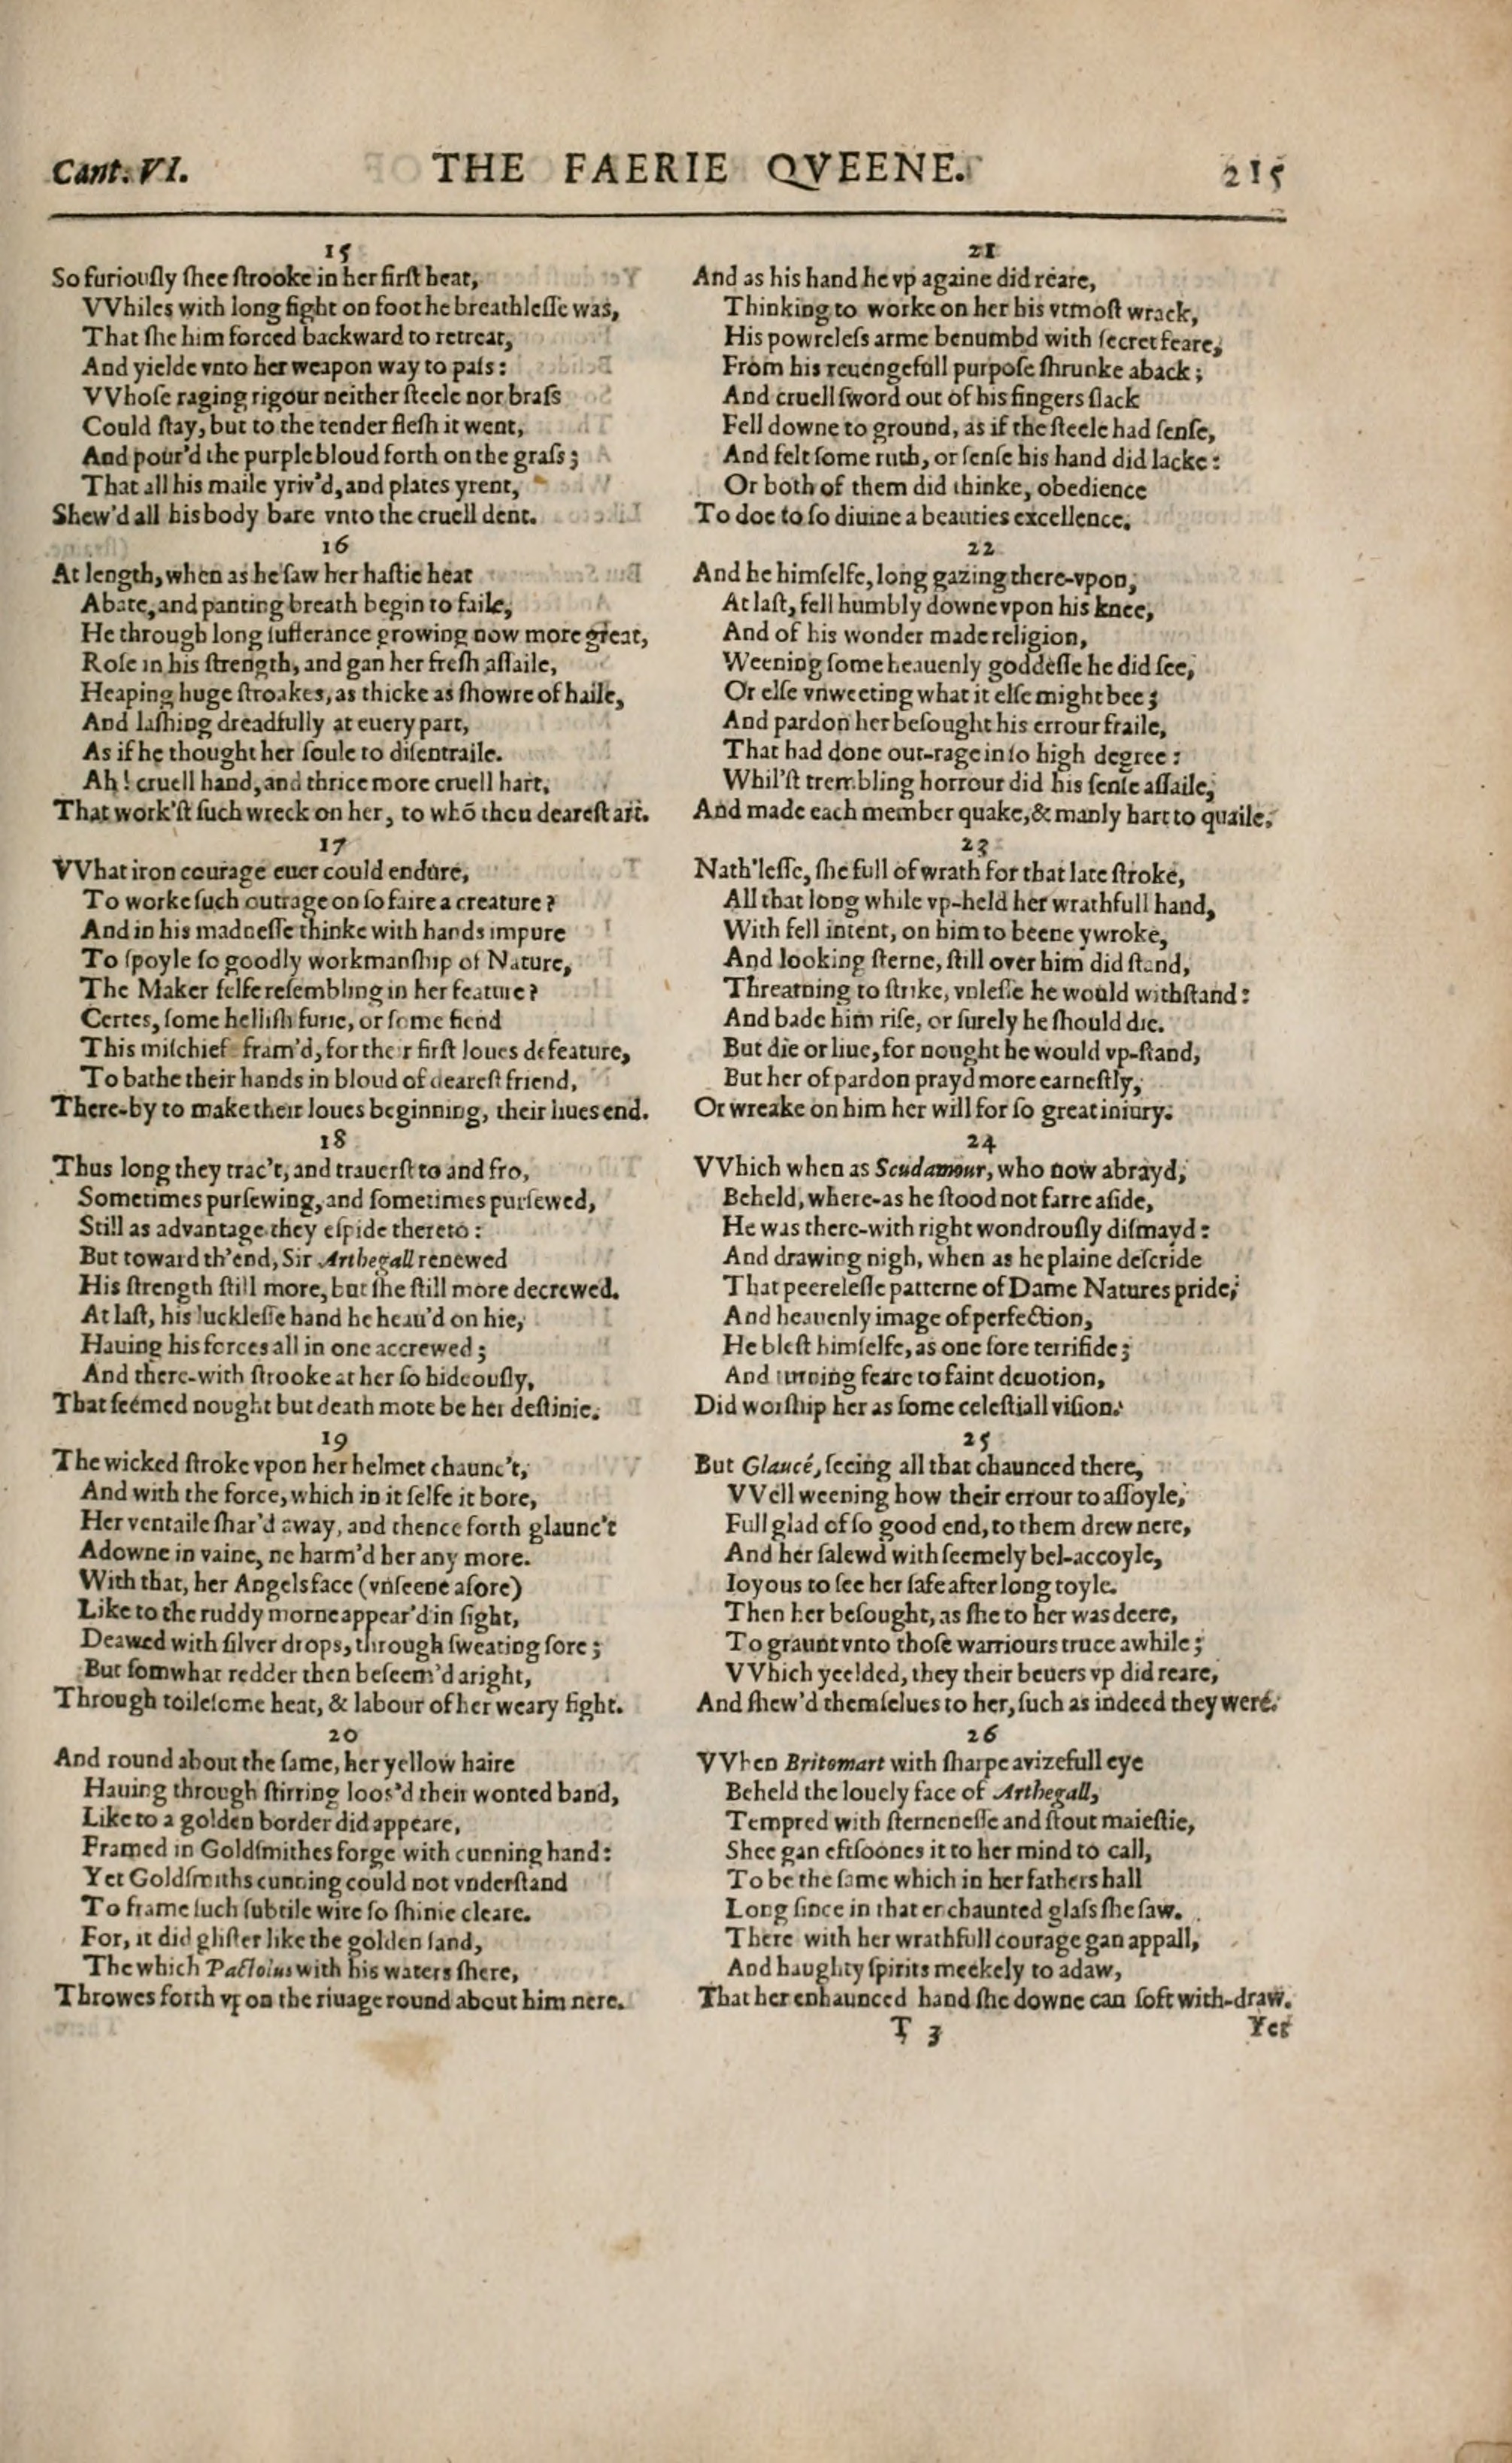 Cant. VI. THE FAERIE QVEENE. 215
15
So furiouſly ſhee ſtrooke in her firſt heat,
VVhiles with long fight on foot he breathleſſe was,
That ſhe him forced backward to retreat,
And yielde vnto her weapon way to paſs:
VVhoſe raging rigour neither ſteele nor braſs
Could ſtay, but to the tender fleſh it went,
And pour'd the purple bloud forth on the graſs;
That all his maile yriv'd, and plates yrent,
Shew'd all his body bare vnto the cruell dent.
16
At length, when as he ſaw her haſtie heat
Abate, and panting breath begin to faile,
He through long ſufferance growing now more great,
Roſe in his ſtrength, and gan her freſh aſſaile,
Heaping huge ſtroakes, as thicke as ſhowre of haile,
And laſhing dreadfully at euery part,
As if he thought her ſoule to diſentraile.
Ah! cruell hand, and thrice more cruell hart,
That work'ſt ſuch wreck on her, to whō thou deareſt art.
17
VVhat iron courage euer could endure,
To worke ſuch outrage on ſo faire a creature?
And in his madneſſe thinke with hands impure
To ſpoyle ſo goodly workmanſhip of Nature,
The Maker ſelfe reſembling in her feature?
Certes, ſome helliſh furie, or ſome fiend
This miſchief fram'd, for their firſt loues defeature,
To bathe their hands in bloud of deareſt friend,
There-by to make their loues beginning, their liues end.
18
Thus long they trac't, and trauerſt to and fro,
Sometimes purſewing, and ſometimes purſewed,
Still as advantage they eſpide thereto:
But toward th'end, Sir Arthegall renewed
His ſtrength ſtill more, but ſhe ſtill more decrewed.
At laſt, his luckleſſe hand he heau'd on hie,
Hauing his forces all in one accrewed;
And there-with ſtrooke at her ſo hideouſly,
That ſeemed nought but death mote be her deſtinie.
19
The wicked ſtroke vpon her helmet chaunc't,
And with the force, which in it ſelfe it bore,
Her ventaile ſhar'd away, and thence forth glaunc't
Adowne in vaine, ne harm'd her any more.
With that, her Angels face (vnſeene afore)
Like to the ruddy morne appear'd in ſight,
Deawed with ſilver drops, through ſweating ſore;
But ſomwhat redder then beſeem'd aright,
Through toileſome heat, & labour of her weary fight.
20
And round about the ſame, her yellow haire
Hauing through ſtirring loos'd their wonted band,
Like to a golden border did appeare,
Framed in Goldſmithes forge with cunning hand:
Yet Goldſmiths cunning could not vnderſtand
To frame ſuch ſubtile wire ſo ſhinie cleare.
For, it did gliſter like the golden ſand,
The which Pactolus with his waters ſhere,
Throwes forth vpon the riuage round about him nere.
21
And as his hand he vp againe did reare,
Thinking to worke on her his vtmoſt wrack,
His powreleſs arme benumbd with ſecret feare,
From his reuengefull purpoſe ſhrunke aback;
And cruell ſword out of his fingers ſlack
Fell downe to ground, as if the ſteele had ſenſe,
And felt ſome ruth, or ſenſe his hand did lacke:
Or both of them did thinke, obedience
To doe to ſo diuine a beauties excellence.
22
And he himſelfe, long gazing there-vpon,
At laſt, fell humbly downe vpon his knee,
And of his wonder made religion,
Weening ſome heauenly goddeſſe he did ſee,
Or elſe vnweeting what it elſe might bee;
And pardon her beſought his errour fraile,
That had done out-rage in ſo high degree:
Whil'ſt trembling horrour did his ſenſe aſſaile,
And made each member quake, & manly hart to quaile.
23
Nath'leſſe, ſhe full of wrath for that late ſtroke,
All that long while vp-held her wrathfull hand,
With fell intent, on him to beene ywroke,
And looking ſterne, ſtill over him did ſtand,
Threatning to ſtrike, vnleſſe he would withſtand:
And bade him riſe, or ſurely he ſhould die.
But die or liue, for nought he would vp-ſtand,
But her of pardon prayd more earneſtly,
Or wreake on him her will for ſo great iniury.
24
VVhich when as Scudamour, who now abrayd,
Beheld, where-as he ſtood not farre aſide,
He was there-with right wondrouſly diſmayd:
And drawing nigh, when as he plaine deſcride
That peereleſſe patterne of Dame Natures pride,
And heauenly image of perfection,
He bleſt himſelfe, as one ſore terrifide;
And turning feare to faint deuotion,
Did worſhip her as ſome celeſtiall viſion.
25
But Glaucé, ſeeing all that chaunced there,
VVell weening how their errour to aſſoyle,
Full glad of ſo good end, to them drew nere,
And her ſalewd with ſeemely bel-accoyle,
Ioyous to ſee her ſafe after long toyle.
Then her beſought, as ſhe to her was deere,
To graunt vnto thoſe warriours truce awhile;
VVhich yeelded, they their beuers vp did reare,
And ſhew'd themſelues to her, ſuch as indeed they were.
26
VVhen Britomart with ſharpe avizefull eye
Beheld the louely face of Arthegall,
Tempred with ſterneneſſe and ſtout maieſtie,
Shee gan eftſoones it to her mind to call,
To be the ſame which in her fathers hall
Long ſince in that enchaunted glaſs ſhe ſaw.
There with her wrathfull courage gan appall,
And haughty ſpirits meekely to adaw,
That her enhaunced hand ſhe downe can ſoft with-draw.
T 3 Yet